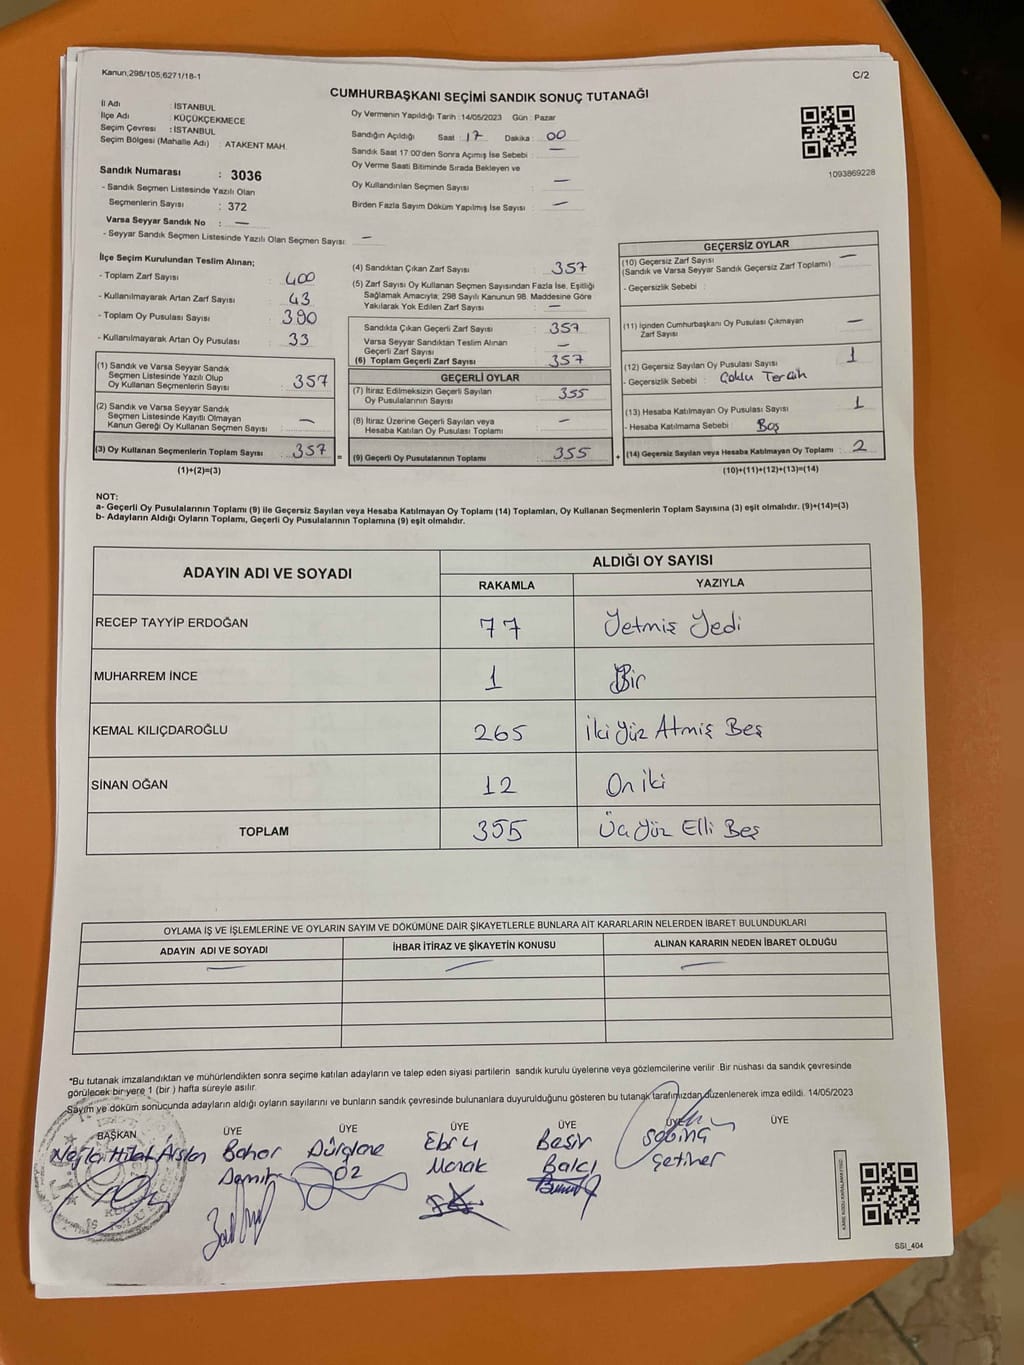 Kanun,298/105,6271/18-1
C/2
CUMHURBAŞKANI SEÇİMİ SANDIK SONUÇ TUTANAĞI
İl Adı : İSTANBUL
İlçe Adı : KÜÇÜKÇEKMECE
Seçim Çevresi : İSTANBUL
Seçim Bölgesi (Mahalle Adı) : ATAKENT MAH.
Sandık Numarası : 3036
- Sandık Seçmen Listesinde Yazılı Olan
Seçmenlerin Sayısı : 372
Varsa Seyyar Sandık No : —
- Seyyar Sandık Seçmen Listesinde Yazılı Olan Seçmen Sayısı: —
Oy Vermenin Yapıldığı Tarih :14/05/2023 Gün : Pazar
Sandığın Açıldığı Saat : 17 Dakika : 00
Sandık Saat 17:00'den Sonra Açımış İse Sebebi : —
Oy Verme Saati Bitiminde Sırada Bekleyen ve
Oy Kullandırılan Seçmen Sayısı : —
Birden Fazla Sayım Döküm Yapılmış İse Sayısı : —
1093869228
İlçe Seçim Kurulundan Teslim Alınan;
- Toplam Zarf Sayısı : 400
- Kullanılmayarak Artan Zarf Sayısı : 43
- Toplam Oy Pusulası Sayısı : 390
- Kullanılmayarak Artan Oy Pusulası : 33
(1) Sandık ve Varsa Seyyar Sandık
Seçmen Listesinde Yazılı Olup
Oy Kullanan Seçmenlerin Sayısı : 357
(2) Sandık ve Varsa Seyyar Sandık
Seçmen Listesinde Kayıtlı Olmayan
Kanun Gereği Oy Kullanan Seçmen Sayısı : —
(3) Oy Kullanan Seçmenlerin Toplam Sayısı : 357
(1)+(2)=(3)
=
(4) Sandıktan Çıkan Zarf Sayısı : 357
(5) Zarf Sayısı Oy Kullanan Seçmen Sayısından Fazla İse, Eşitliği
Sağlamak Amacıyla; 298 Sayılı Kanunun 98. Maddesine Göre
Yakılarak Yok Edilen Zarf Sayısı : —
Sandıkta Çıkan Geçerli Zarf Sayısı : 357
Varsa Seyyar Sandıktan Teslim Alınan
Geçerli Zarf Sayısı : —
(6) Toplam Geçerli Zarf Sayısı : 357
GEÇERLİ OYLAR
(7) İtiraz Edilmeksizin Geçerli Sayılan
Oy Pusulalarının Sayısı : 355
(8) İtiraz Üzerine Geçerli Sayılan veya
Hesaba Katılan Oy Pusulası Toplamı : —
(9) Geçerli Oy Pusulalarının Toplamı : 355
+
GEÇERSİZ OYLAR
(10) Geçersiz Zarf Sayısı : —
(Sandık ve Varsa Seyyar Sandık Geçersiz Zarf Toplamı)
- Geçersizlik Sebebi :
(11) İçinden Cumhurbaşkanı Oy Pusulası Çıkmayan
Zarf Sayısı : —
(12) Geçersiz Sayılan Oy Pusulası Sayısı : 1
- Geçersizlik Sebebi : Çoklu Tercih
(13) Hesaba Katılmayan Oy Pusulası Sayısı : 1
- Hesaba Katılmama Sebebi : Boş
(14) Geçersiz Sayılan veya Hesaba Katılmayan Oy Toplamı : 2
(10)+(11)+(12)+(13)=(14)
NOT:
a- Geçerli Oy Pusulalarının Toplamı (9) ile Geçersiz Sayılan veya Hesaba Katılmayan Oy Toplamı (14) Toplamları, Oy Kullanan Seçmenlerin Toplam Sayısına (3) eşit olmalıdır. (9)+(14)=(3)
b- Adayların Aldığı Oyların Toplamı, Geçerli Oy Pusulalarının Toplamına (9) eşit olmalıdır.
ADAYIN ADI VE SOYADI
ALDIĞI OY SAYISI
RAKAMLA YAZIYLA
RECEP TAYYİP ERDOĞAN 77 Yetmiş Yedi
MUHARREM İNCE 1 Bir
KEMAL KILIÇDAROĞLU 265 İki Yüz Atmış Beş
SİNAN OĞAN 12 On iki
TOPLAM 355 Üç Yüz Elli Beş
OYLAMA İŞ VE İŞLEMLERİNE VE OYLARIN SAYIM VE DÖKÜMÜNE DAİR ŞİKAYETLERLE BUNLARA AİT KARARLARIN NELERDEN İBARET BULUNDUKLARI
ADAYIN ADI VE SOYADI İHBAR İTİRAZ VE ŞİKAYETİN KONUSU ALINAN KARARIN NEDEN İBARET OLDUĞU
— — —
*Bu tutanak imzalandıktan ve mühürlendikten sonra seçime katılan adayların ve talep eden siyasi partilerin sandık kurulu üyelerine veya gözlemcilerine verilir .Bir nüshası da sandık çevresinde
görülecek bir yere 1 (bir ) hafta süreyle asılır.
Sayım ve döküm sonucunda adayların aldığı oyların sayılarını ve bunların sandık çevresinde bulunanlara duyurulduğunu gösteren bu tutanak tarafımızdan düzenlenerek imza edildi. 14/05/2023
BAŞKAN ÜYE ÜYE ÜYE ÜYE ÜYE ÜYE
Arslan Bahar Ebru Besir Sabiha
Demir ÖZ Balcı Çetiner
SSI_404